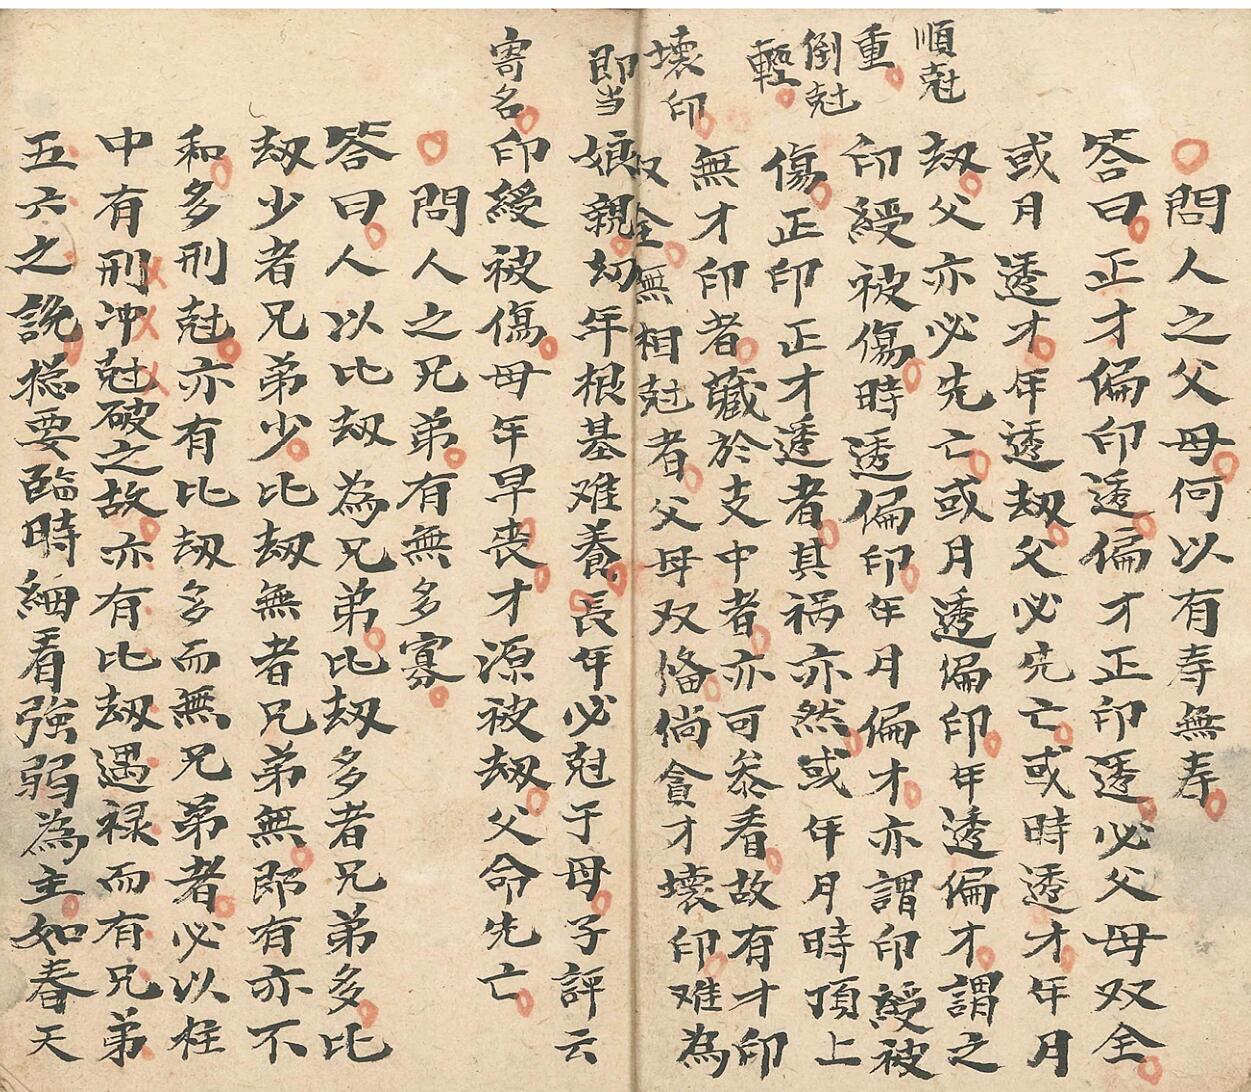 順尅
重
倒尅
輕
壞印
即当
寄名
問人之父母何以有寿無寿
答曰正才偏印透偏才正印透必父母双全
或月透才年透刼父必先亡或時透才年月
刼父亦必先亡或月透偏印年透偏才謂之
印綬被傷時透偏印年月偏才亦謂印綬被
傷正印正才透者其祸亦然或年月時頂上
無才印者藏於支中者亦可叅看故有才印
双全無相尅者父母双俻倘貪才壞印难為
娘親幼年根基难養長年必尅于母子評云
印綬被傷母年早喪才源被刼父命先亡
問人之兄弟有無多寡
答曰人以比刼為兄弟比刼多者兄弟多比
刼少者兄弟少比刼無者兄弟無郎有亦不
和多刑尅亦有比刼多而無兄弟者必以柱
中有刑冲尅破之故亦有比刼遇禄而有兄弟
五六之說搃要臨時細看強弱為主如春天